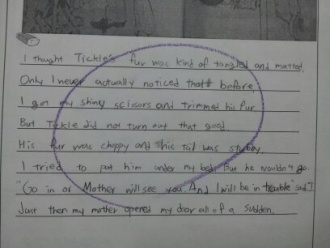 I thought Tickle's fur was kind of tangled and matted.
Only I never actually noticed that before.
I got my shiny scissors and trimmed his fur.
But Tickle did not turn out that good.
His fur was choppy and this tail was stubby.
I tried to put him under my bed. But he wouldn't go
"Go in or Mother will see you. And I will be in trouble" said I
Just then my mother opened my door all of a sudden.